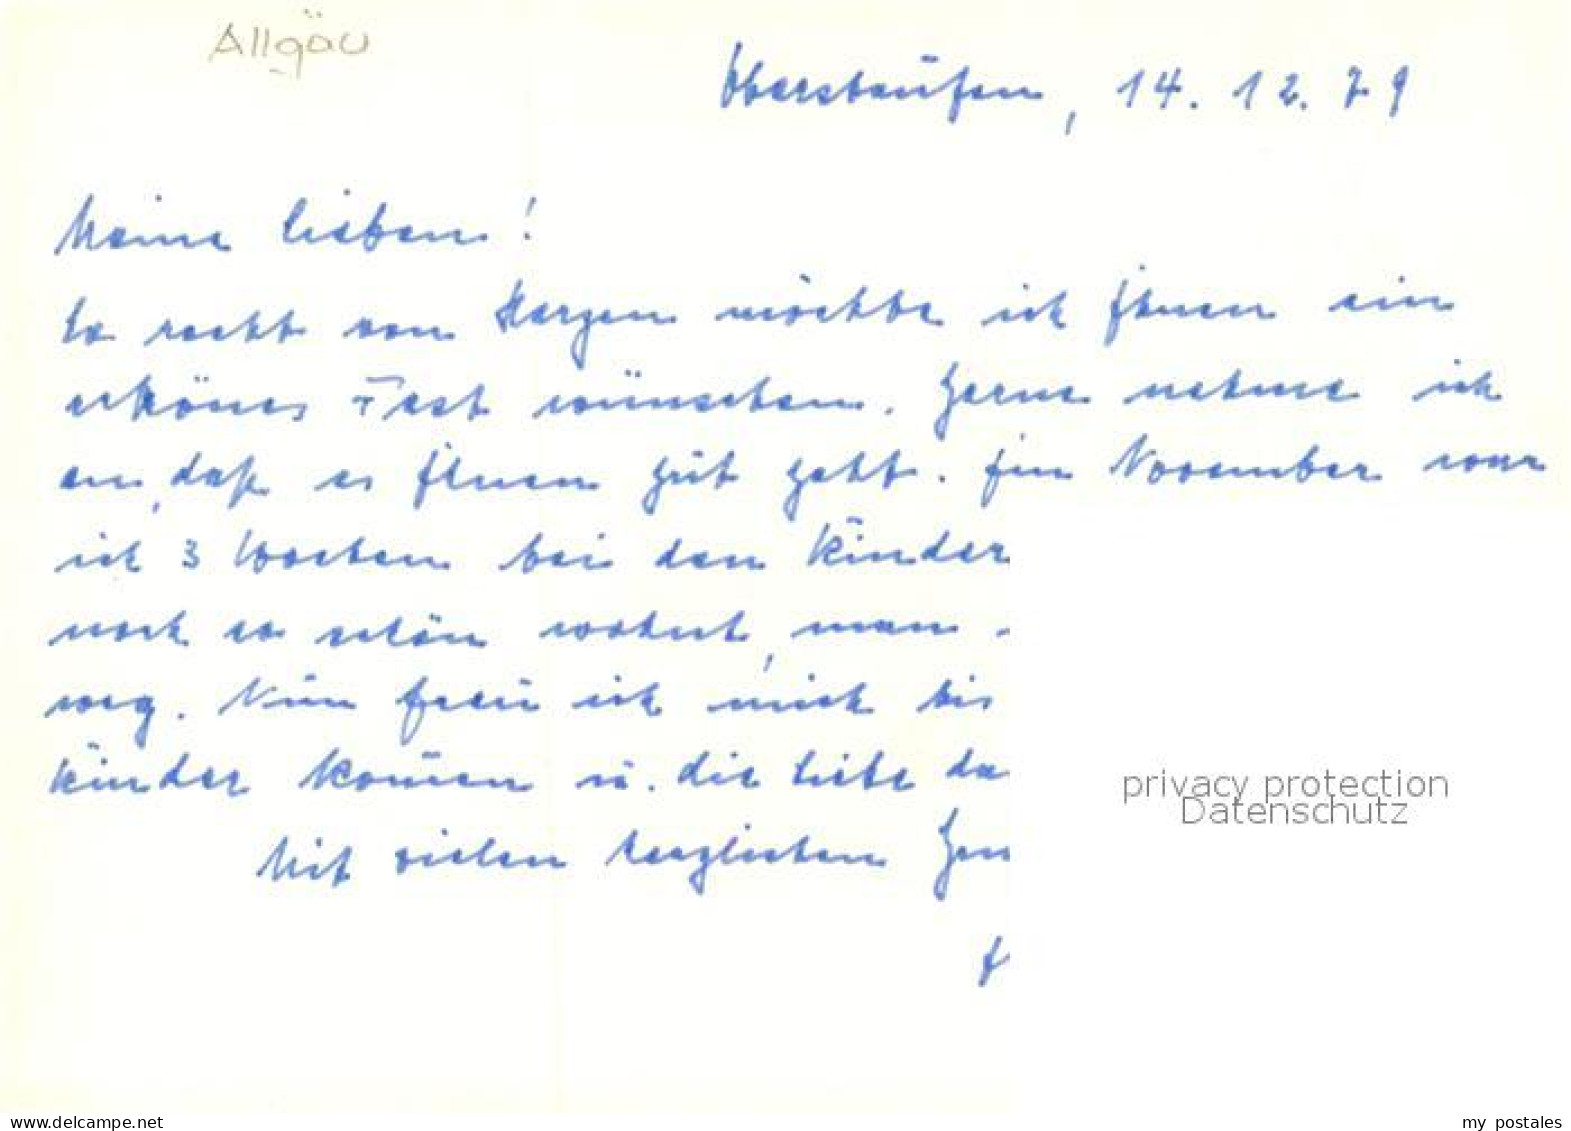 Allgäu
Oberstaufen, 14. 12. 79
Meine Lieben!
So recht von Herzen möchte ich Ihnen ein
schönes Fest wünschen. Gerne nehme ich
an, daß es Ihnen gut geht. Im November war
ich 3 Wochen bei den Kinder
noch so schön wohnt, man
weg. Nun freu ich mich bis
Kinder kommen u. die liebe da
Mit vielen herzlichen
privacy protection
Datenschutz
www.delcampe.net
my_postales